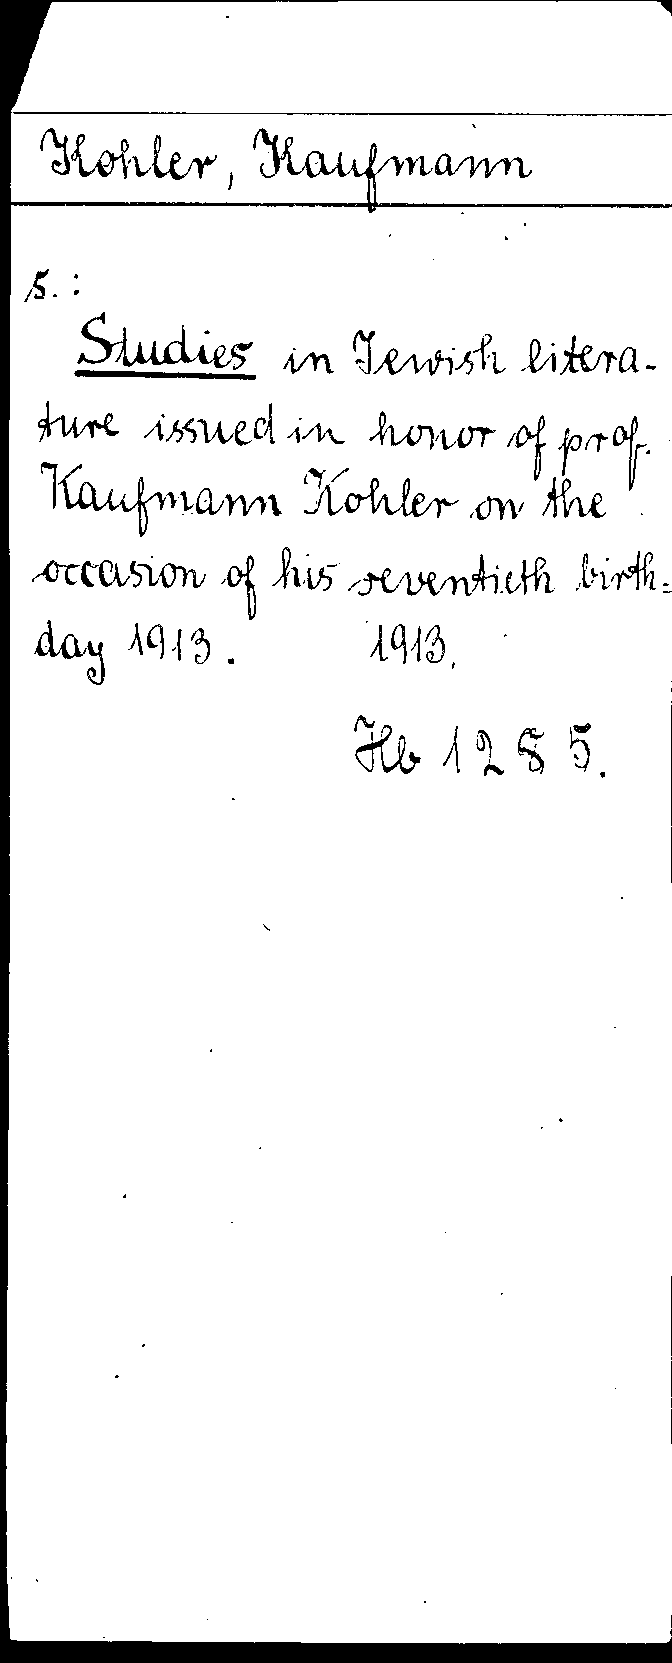 Kohler, Kaufmann
s. :
Studies in Jewish litera-
ture issued in honor of prof.
Kaufmann Kohler on the
occasion of his seventieth birth=
day 1913. 1913.
Hb 1285.